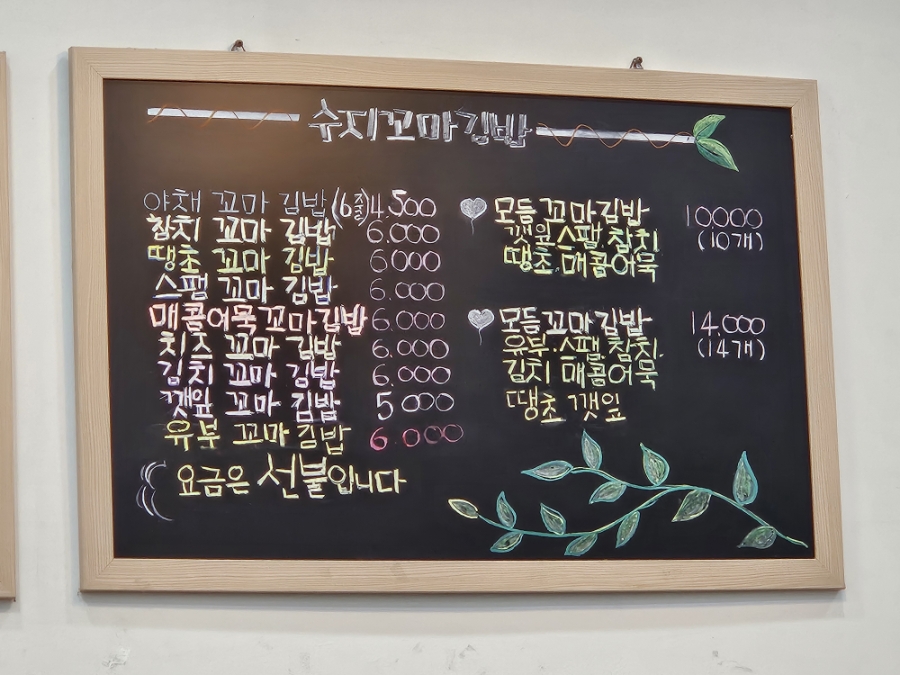 수지꼬마김밥
야채 꼬마 김밥(6줄) 4,500
참치 꼬마 김밥 6.000
땡초 꼬마 김밥 6000
스팸 꼬마 김밥 6.000
매콤어묵꼬마김밥 6.000
치즈 꼬마 김밥 6.000
김치 꼬마 김밥 6.000
깻잎 꼬마 김밥 5000
유부 꼬마 김밥 6.000
요금은 선불입니다
모듬 꼬마김밥 10,000
깻잎.스팸.참치 (10개)
땡초.매콤어묵
모듬꼬마김밥 14.000
유부.스팸.참치. (14개)
김치 매콤어묵
땡초 깻잎